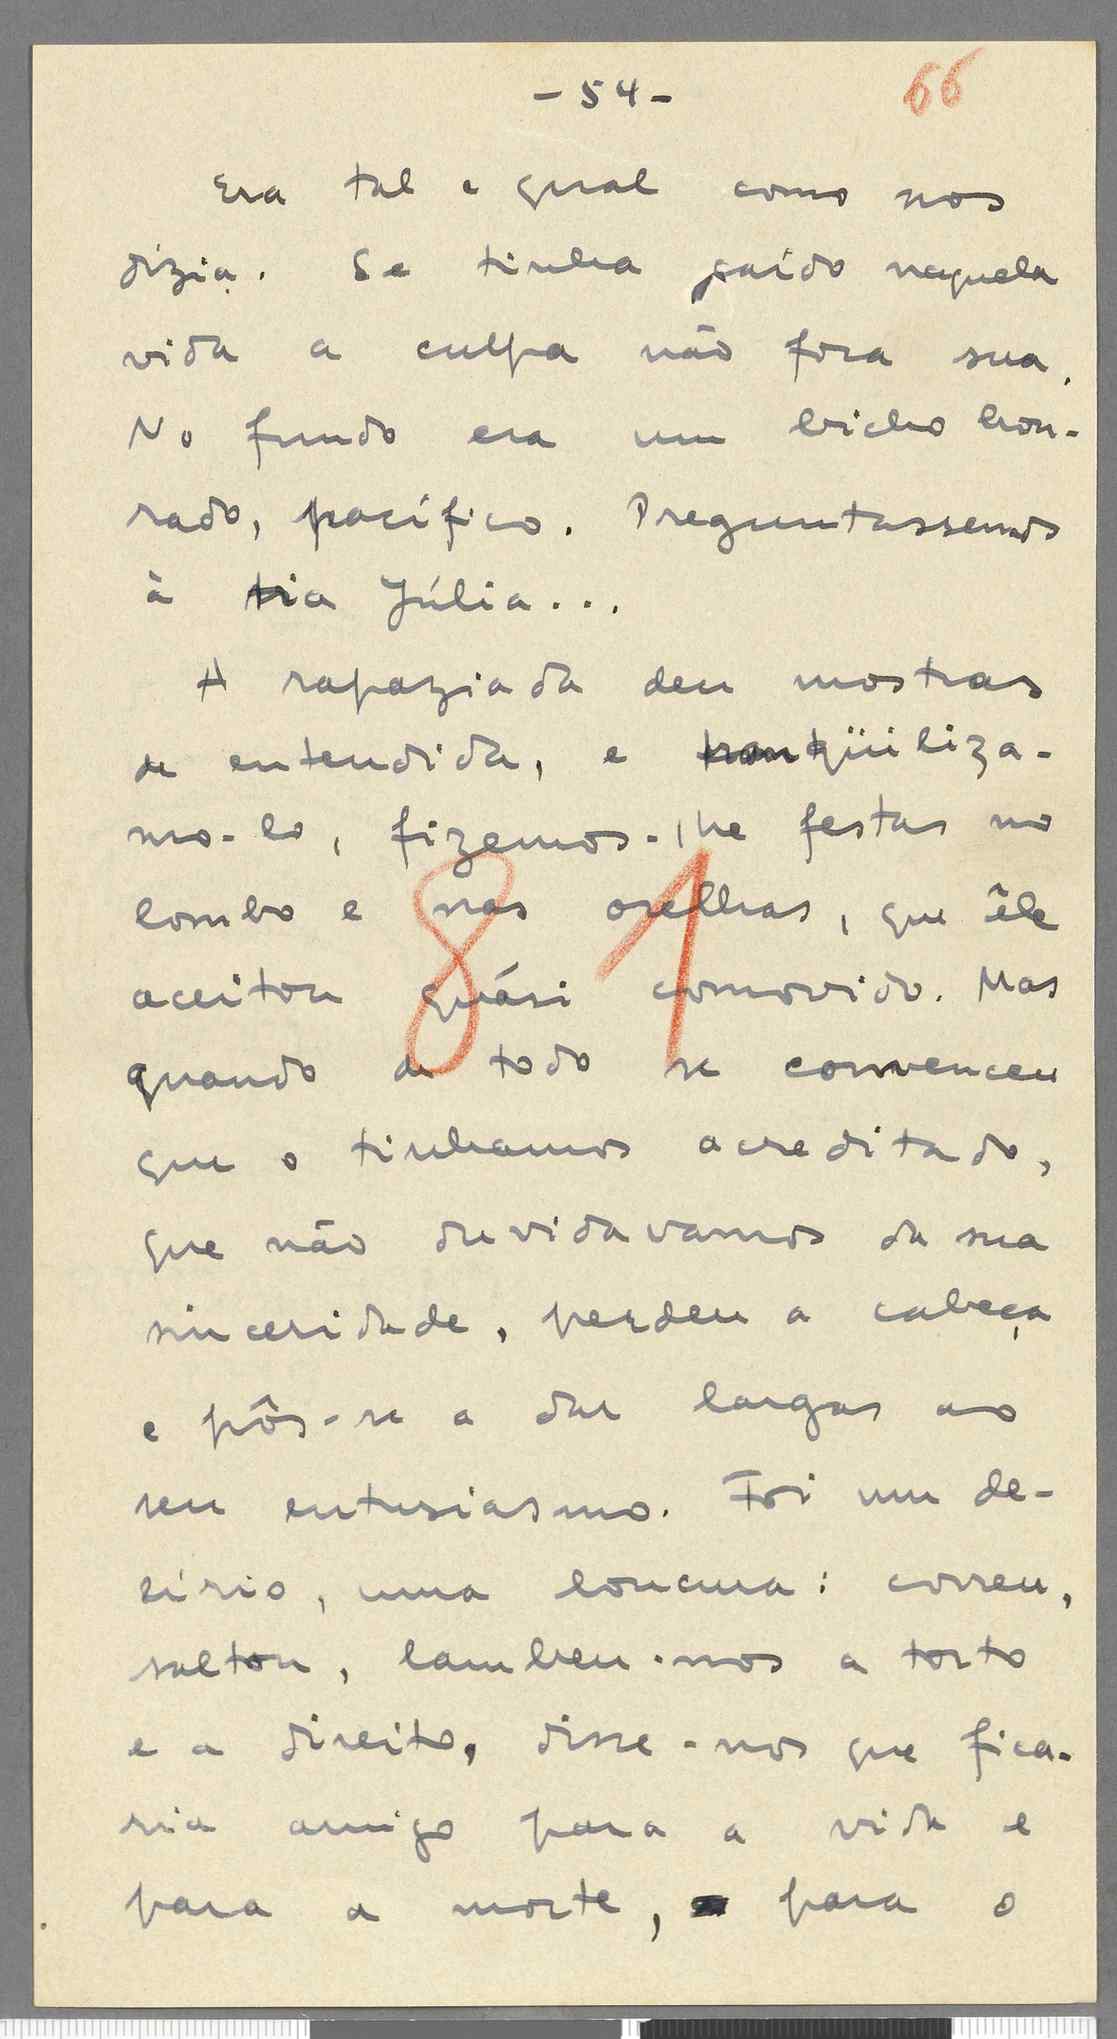 - 54 -
66
Era tal e qual como nos
dizia. Se tinha saído naquela
vida a culpa não fora sua.
No fundo era um bicho hon-
rado, pacífico. Preguntassemos
à tia Júlia...
A rapaziada deu mostras
de entendida, e tranqüiliza-
mo-lo, fizemos-lhe festas no
lombo e nas orelhas, que êle
aceitou quási comovido. Mas
quando de todo se convenceu
que o tinhamos acreditado,
que não duvidavamos da sua
sinceridade, perdeu a cabeça
e pôs-se a dar largas ao
seu entusiasmo. Foi um de-
lírio, uma loucura: correu,
saltou, lambeu-nos a torto
e a direito, disse-nos que fica-
ria amigo para a vida e
para a morte, para o
81